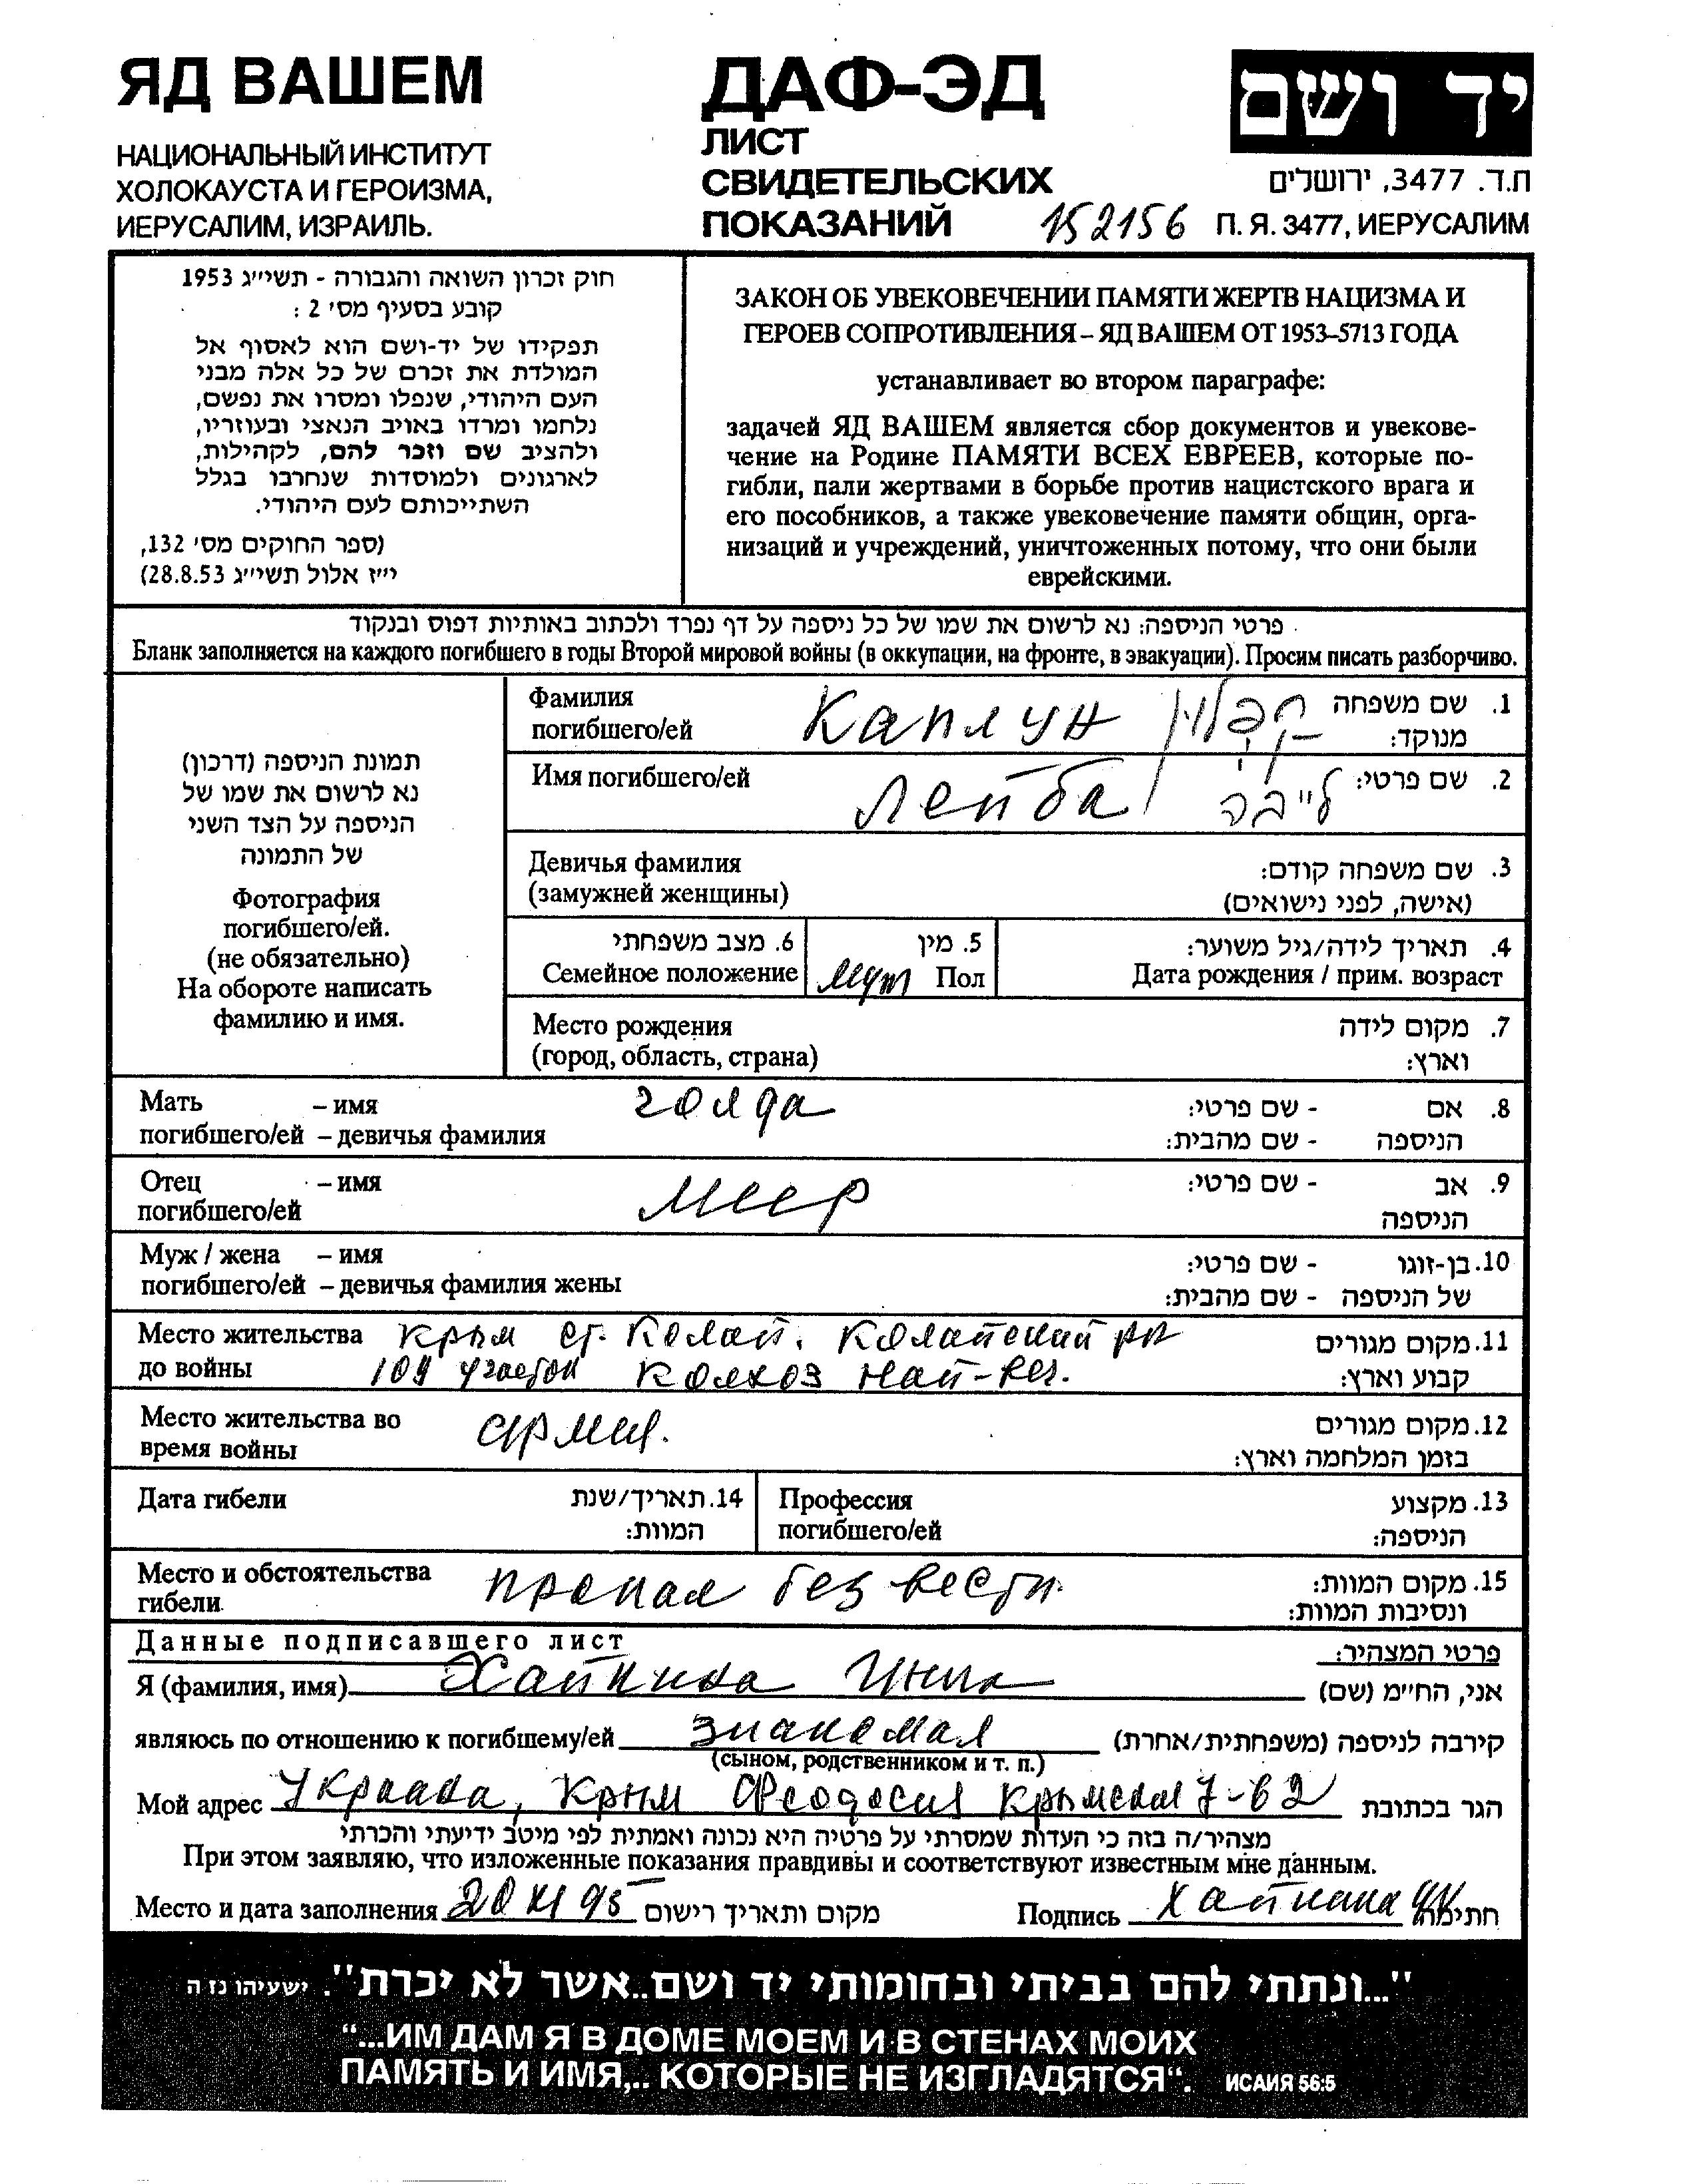 ЯД ВАШЕМ
НАЦИОНАЛЬНЫЙ ИНСТИТУТ
ХОЛОКАУСТА И ГЕРОИЗМА,
ИЕРУСАЛИМ, ИЗРАИЛЬ.
ДАФ-ЭД
ЛИСТ
СВИДЕТЕЛЬСКИХ
ПОКАЗАНИЙ 152156
יד ושם
ת.ד. 3477, ירושלים
П. Я. 3477, ИЕРУСАЛИМ
חוק זכרון השואה והגבורה - תשי״ג 1953
קובע בסעיף מס׳ 2 :
תפקידו של יד-ושם הוא לאסוף אל
המולדת את זכרם של כל אלה מבני
העם היהודי, שנפלו ומסרו את נפשם,
נלחמו ומרדו באויב הנאצי ובעוזריו,
ולהציב שם וזכר להם, לקהילות,
לארגונים ולמוסדות שנחרבו בגלל
השתייכותם לעם היהודי.
(ספר החוקים מס׳ 132,
י״ז אלול תשי״ג 28.8.53)
ЗАКОН ОБ УВЕКОВЕЧЕНИИ ПАМЯТИ ЖЕРТВ НАЦИЗМА И
ГЕРОЕВ СОПРОТИВЛЕНИЯ – ЯД ВАШЕМ ОТ 1953–5713 ГОДА
устанавливает во втором параграфе:
задачей ЯД ВАШЕМ является сбор документов и увекове-
чение на Родине ПАМЯТИ ВСЕХ ЕВРЕЕВ, которые по-
гибли, пали жертвами в борьбе против нацистского врага и
его пособников, а также увековечение памяти общин, орга-
низаций и учреждений, уничтоженных потому, что они были
еврейскими.
פרטי הניספה: נא לרשום את שמו של כל ניספה על דף נפרד ולכתוב באותיות דפוס ובנקוד
Бланк заполняется на каждого погибшего в годы Второй мировой войны (в оккупации, на фронте, в эвакуации). Просим писать разборчиво.
תמונת הניספה (דרכון)
נא לרשום את שמו של
הניספה על הצד השני
של התמונה
Фотография
погибшего/ей.
(не обязательно)
На обороте написать
фамилию и имя.
Фамилия Каплун קפלון 1. שם משפחה
погибшего/ей מנוקד:
Имя погибшего/ей Лейба לייבה 2. שם פרטי:
Девичья фамилия 3. שם משפחה קודם:
(замужней женщины) (אישה, לפני נישואים)
6. מצב משפחתי 5. מין 4. תאריך לידה/גיל משוער:
Семейное положение муж Пол Дата рождения / прим. возраст
Место рождения 7. מקום לידה
(город, область, страна) וארץ:
Мать – имя Голда 8. אם - שם פרטי:
погибшего/ей – девичья фамилия הניספה - שם מהבית:
Отец – имя Меер 9. אב - שם פרטי:
погибшего/ей הניספה
Муж / жена – имя 10. בן-זוגו - שם פרטי:
погибшего/ей – девичья фамилия жены של הניספה - שם מהבית:
Место жительства Крым ст. Колай. Колайский рн 11. מקום מגורים
до войны 109 участок Колхоз Най-вег. קבוע וארץ:
Место жительства во армия. 12. מקום מגורים
время войны בזמן המלחמה וארץ:
Дата гибели 14. תאריך/שנת Профессия 13. מקצוע
המוות: погибшего/ей הניספה:
Место и обстоятельства пропал без вести. 15. מקום המוות:
гибели ונסיבות המוות:
Данные подписавшего лист פרטי המצהיר:
Я (фамилия, имя) Хайкина Инна אני, הח״מ (שם)
являюсь по отношению к погибшему/ей знакомая קירבה לניספה (משפחתית/אחרת)
(сыном, родственником и т. п.)
Мой адрес Украина, Крым Феодосия Крымская 7-62 הגר בכתובת
מצהיר/ה בזה כי העדות שמסרתי על פרטיה היא נכונה ואמתית לפי מיטב ידיעתי והכרתי
При этом заявляю, что изложенные показания правдивы и соответствуют известным мне данным.
Место и дата заполнения 20 XI 95 מקום ותאריך רישום Подпись Хайкина חתימה
"...ונתתי להם בביתי ובחומותי יד ושם..אשר לא יכרת". ישעיהו נז ה
“...ИМ ДАМ Я В ДОМЕ МОЕМ И В СТЕНАХ МОИХ
ПАМЯТЬ И ИМЯ,.. КОТОРЫЕ НЕ ИЗГЛАДЯТСЯ“. ИСАИЯ 56:5